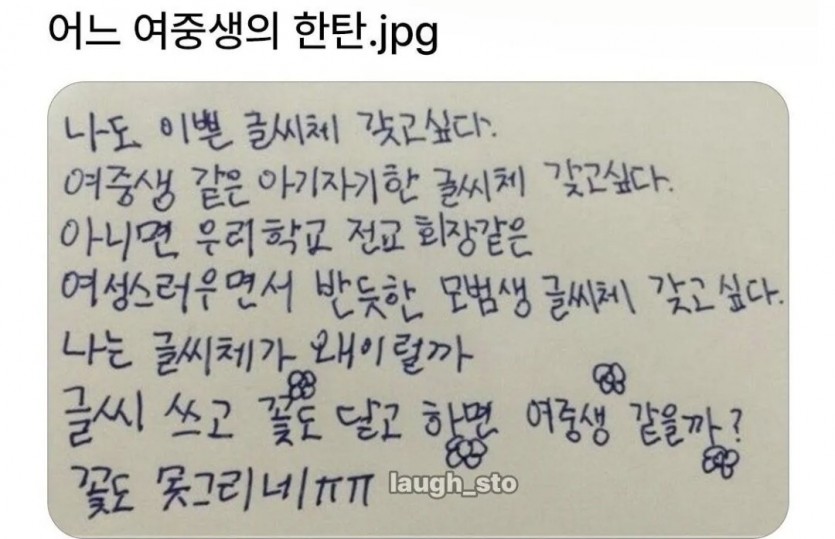 어느 여중생의 한탄.jpg
나도 이쁜 글씨체 갖고싶다.
여중생 같은 아기자기한 글씨체 갖고싶다.
아니면 우리학교 전교 회장같은
여성스러우면서 반듯한 모범생 글씨체 갖고싶다.
나는 글씨체가 왜이럴까
글씨 쓰고 꽃도 달고 하면 여중생 같을까?
꽃도 못그리네ㅠㅠ
laugh_sto